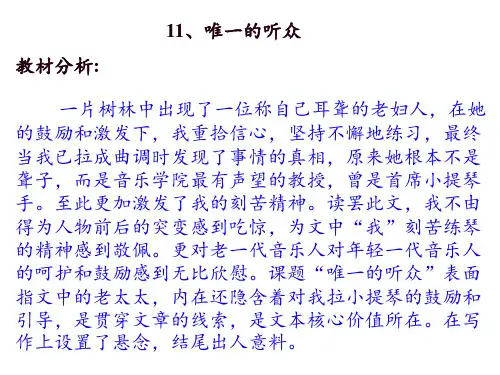 11、唯一的听众
教材分析:
一片树林中出现了一位称自己耳聋的老妇人，在她
的鼓励和激发下，我重拾信心，坚持不懈地练习，最终
当我已拉成曲调时发现了事情的真相，原来她根本不是
聋子，而是音乐学院最有声望的教授，曾是首席小提琴
手。至此更加激发了我的刻苦精神。读罢此文，我不由
得为人物前后的突变感到吃惊，为文中“我”刻苦练琴
的精神感到敬佩。更对老一代音乐人对年轻一代音乐人
的呵护和鼓励感到无比欣慰。课题“唯一的听众”表面
指文中的老太太，内在还隐含着对我拉小提琴的鼓励和
引导，是贯穿文章的线索，是文本核心价值所在。在写
作上设置了悬念，结尾出人意料。